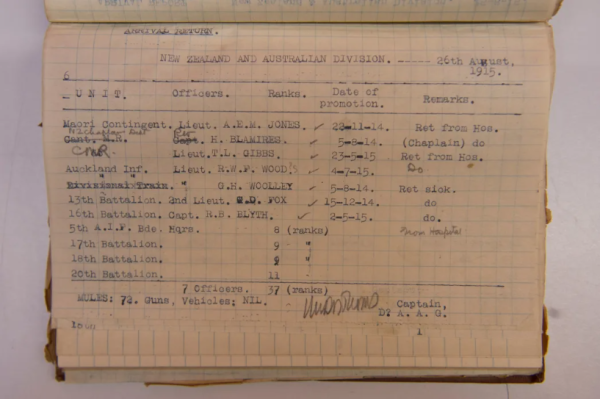 ARRIVAL RETURN.
NEW ZEALAND AND AUSTRALIAN DIVISION. ----- 26th August, 1915.
6
UNIT. Officers. Ranks. Date of promotion. Remarks.
Maori Contingent. Lieut. A.E.M. JONES. ✓ 22-11-14. Ret from Hos.
Cant. M.R. Capt. H. BLAMIRES. ✓ 5-8-14. (Chaplain) do
CMR Lieut. T.L. GIBBS ✓ 23-5-15 Ret from Hos.
Auckland Inf. Lieut. R.W.F. WOOD ✓ 4-7-15. Do
Divisional Train. " G.H. WOOLLEY ✓ 5-8-14. Ret sick.
13th Battalion. 2nd Lieut. E.D. FOX ✓ 15-12-14. do
16th Battalion. Capt. H.S. BLYTH. ✓ 2-5-15. do.
5th A.I.F. Bde. Hqrs. 8 (ranks) from Hospital
17th Battalion. 9 "
18th Battalion. 9 "
20th Battalion. 11
7 Officers. 37 (ranks)
MULES: 72. Guns, Vehicles; NIL.
Captain,
D. A. A. G.
18th 1